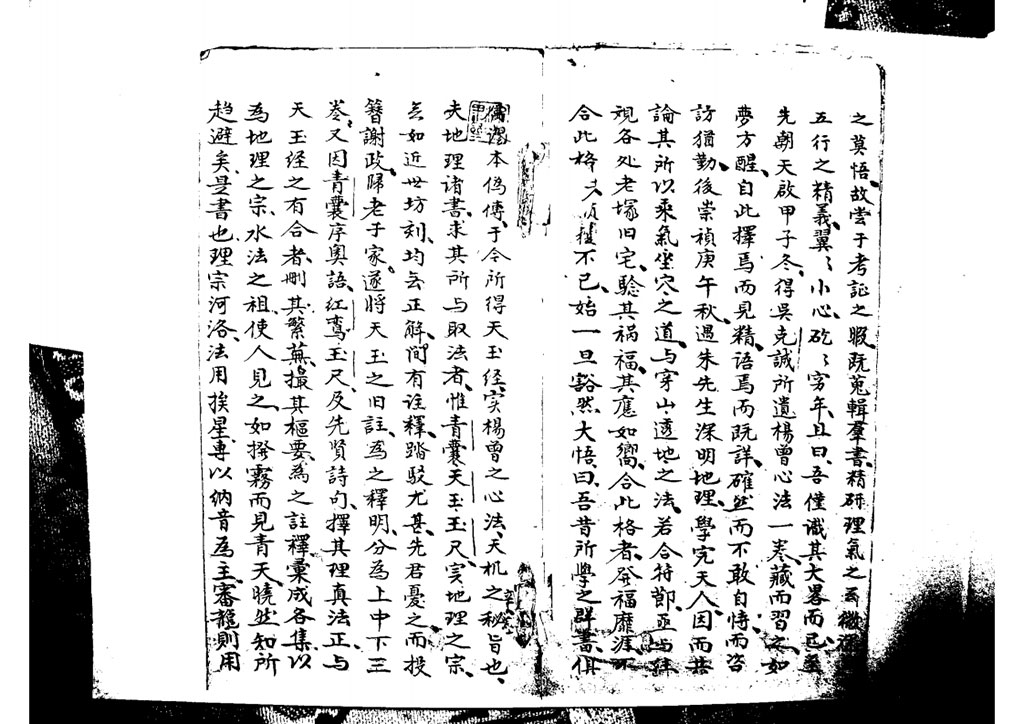 之莫悟、故尝于考証之暇、旣蒐輯羣書、精研理氣之
五行之精義、翼〻小心、矻〻穷年、且曰、吾僅識其大畧而已、至
先朝天啟甲子冬、得吳克誠所遺楊曾心法一卷、藏而習之、如
夢方醒、自此擇焉而見精、语焉而旣詳、確然而不敢自恃、而咨
訪猶勤、後崇禎庚午秋、遇朱先生深明地理、學究天人、因而共
論其所以乘氣坐穴之道、与穿山透地之法、若合符節、亟与
視各处老塚旧宅、驗其祸福、其應如嚮、合此格者、發福靡涯、不
合此格 不已、始一旦豁然大悟、曰、吾昔所學之群書、俱
本伪傳、于今所得天玉经、实楊曾之心法、天机之秘旨也、
夫地理诸書、求其所与取法者、惟青囊天玉玉尺、实地理之宗、
无如近世坊刻、均无正解、间有诠釋、踏駁尤甚、先君憂之、而投
簪謝政、歸老于家、遂将天玉之旧註、為之釋明、分為上中下三
卷、又因青囊序奧語、红鸾玉尺、及先賢詩句、擇其理真法正、与
天玉经之有合者、刪其繁蕪、撮其樞要、為之註釋、彙成各集、以
為地理之宗、水法之祖、使人見之、如撥霧而見青天、曉然知所
趋避矣、是書也、理宗河洛、法用挨星、專以纳音為主、審龍則用